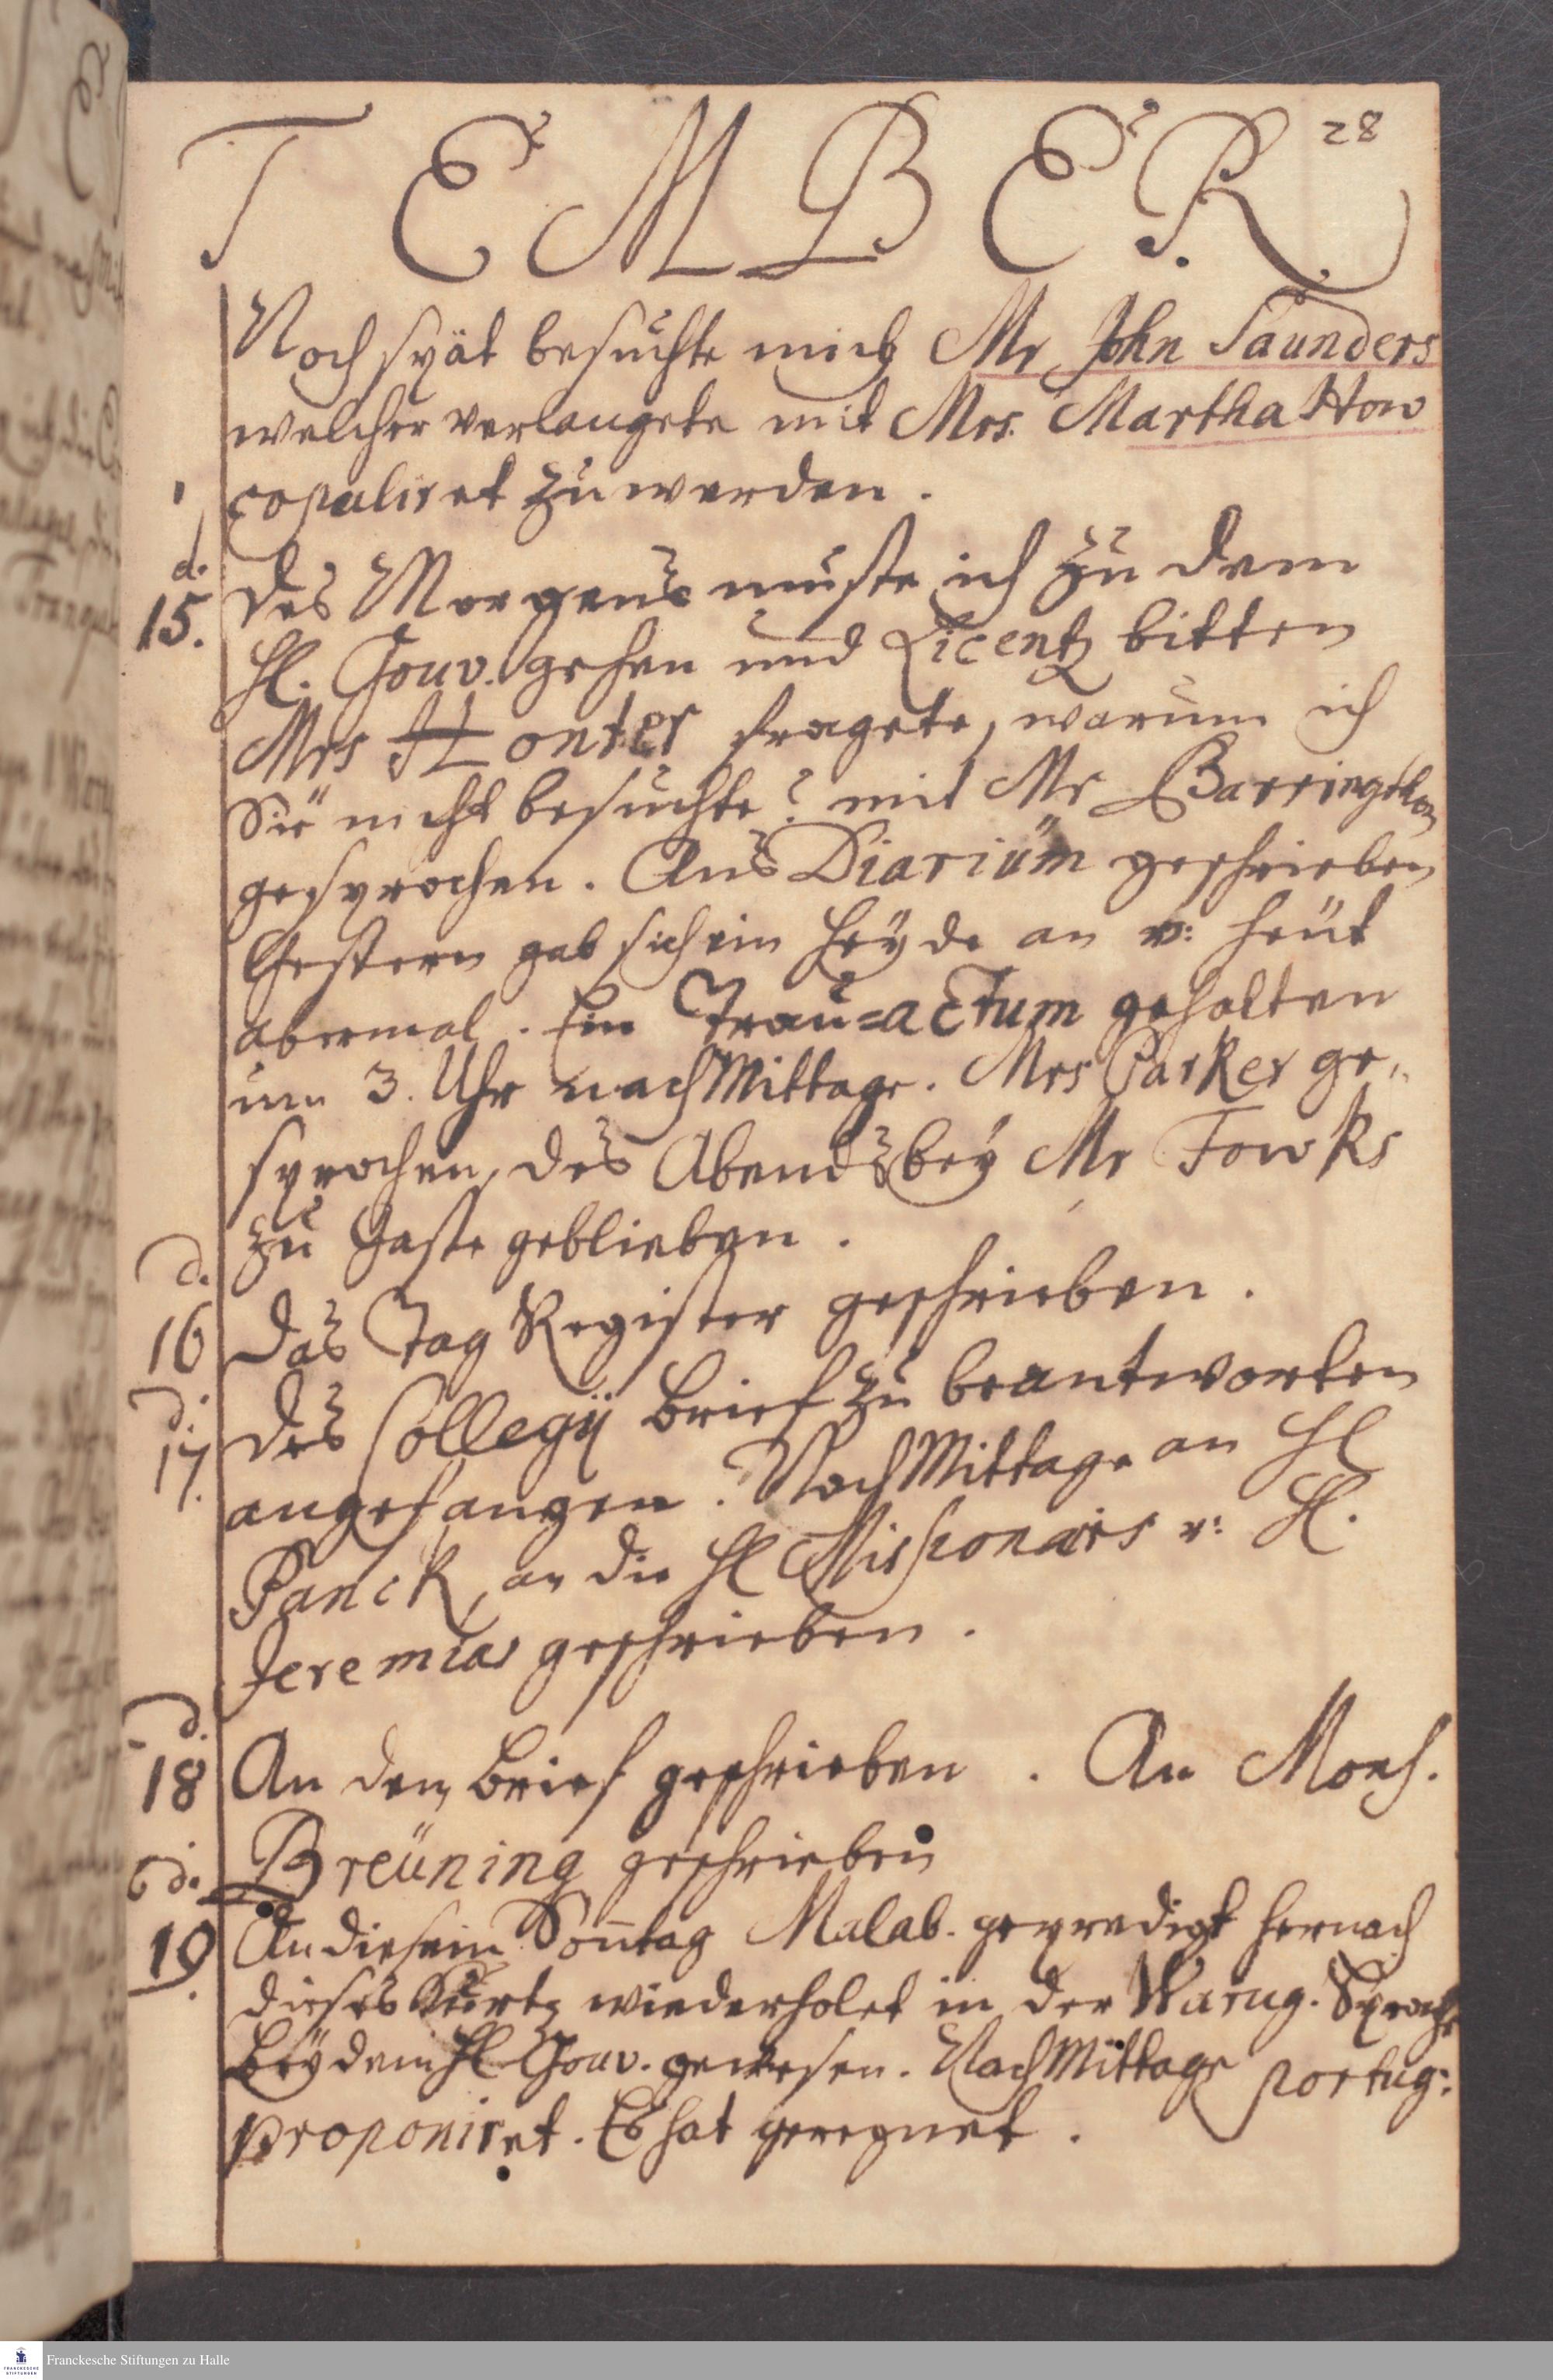 T E M B E R.
28
Noch spät besuchte mich Mr John Saunders
welcher verlangete mit Mrs. Martha How
copuliret zu werden.
d.
15.
des Morgens muste ich zu dem
H. Gouv. gehen und Licentz bitten
Mrs Honter fragete, warum ich
Sie nicht besuchte? mit Mr Barringthon
gesprochen. Ans Diarium geschrieben
Gestern gab sich ein Heyde an u: heüt
abermal. Ein Trau=actum gehalten
um 3. Uhr nachMittage. Mrs Parker ge„
sprochen, des Abends bey Mr Fowks
zu Gaste geblieben.
d.
16
das Tag Register geschrieben.
d.
17.
des Collegij Brief zu beantworten
angefangen. NachMittage an H
Panck, an die H Missionairs u: H.
Jeremias geschrieben.
d.
18
An dem Brief geschrieben. An Mons.
Breüning geschrieben
d.
19.
An diesem Sontag Malab. gepredigt hernach
dieses Kurtz wiederholet in der Warug. Sprache
Bey dem H Gouv. gewesen. NachMittage portug:
proponiret. Es hat geregnet.
Franckesche Stiftungen zu Halle
FRANCKESCHE
STIFTUNGEN